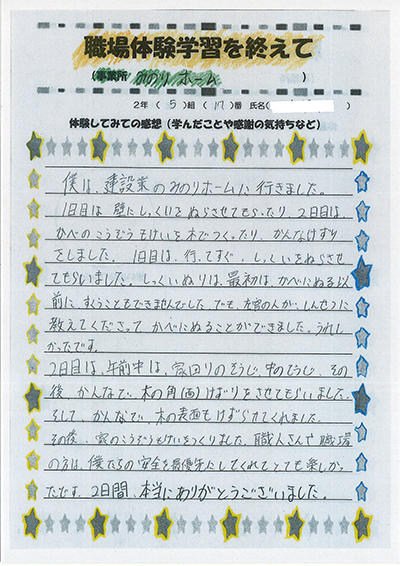 職場体験学習を終えて
(事業所 みのりホーム )
2年( 5 )組( 17 )番 氏名( )
体験してみての感想(学んだことや感謝の気持ちなど)
僕は、建設業のみのりホームに行きました。
1日目は壁にしっくいをぬらさせてもらったり、2日目は、
かべのこうぞうもけいを木でつくったり、かんなけずり
をしました。1日目は、行ってすぐ、しっくいをぬらさせ
てもらいました。しっくいぬりは、最初はかべにぬる以
前に、すくうこともできませんでした。でも、
教えてくださってかべにぬることができました。うれし
かったです。
2日目は、午前中は、家回りのそうじ、中のそうじ、その
後、かんなで、木の角けずりをさせてもらいました。
そして、かんなで、木の表面もけずらせてくれました。
その後、家のこうぞうもけいをつくりました。職人さんや職場
の方は、僕たちの安全を最優先にしてくれてとても楽しか
ったです。2日間、本当にありがとうございました。